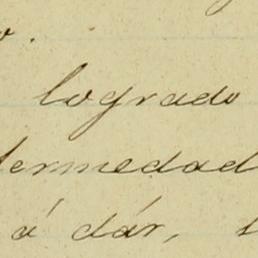 logrado
ermedad
á dár,